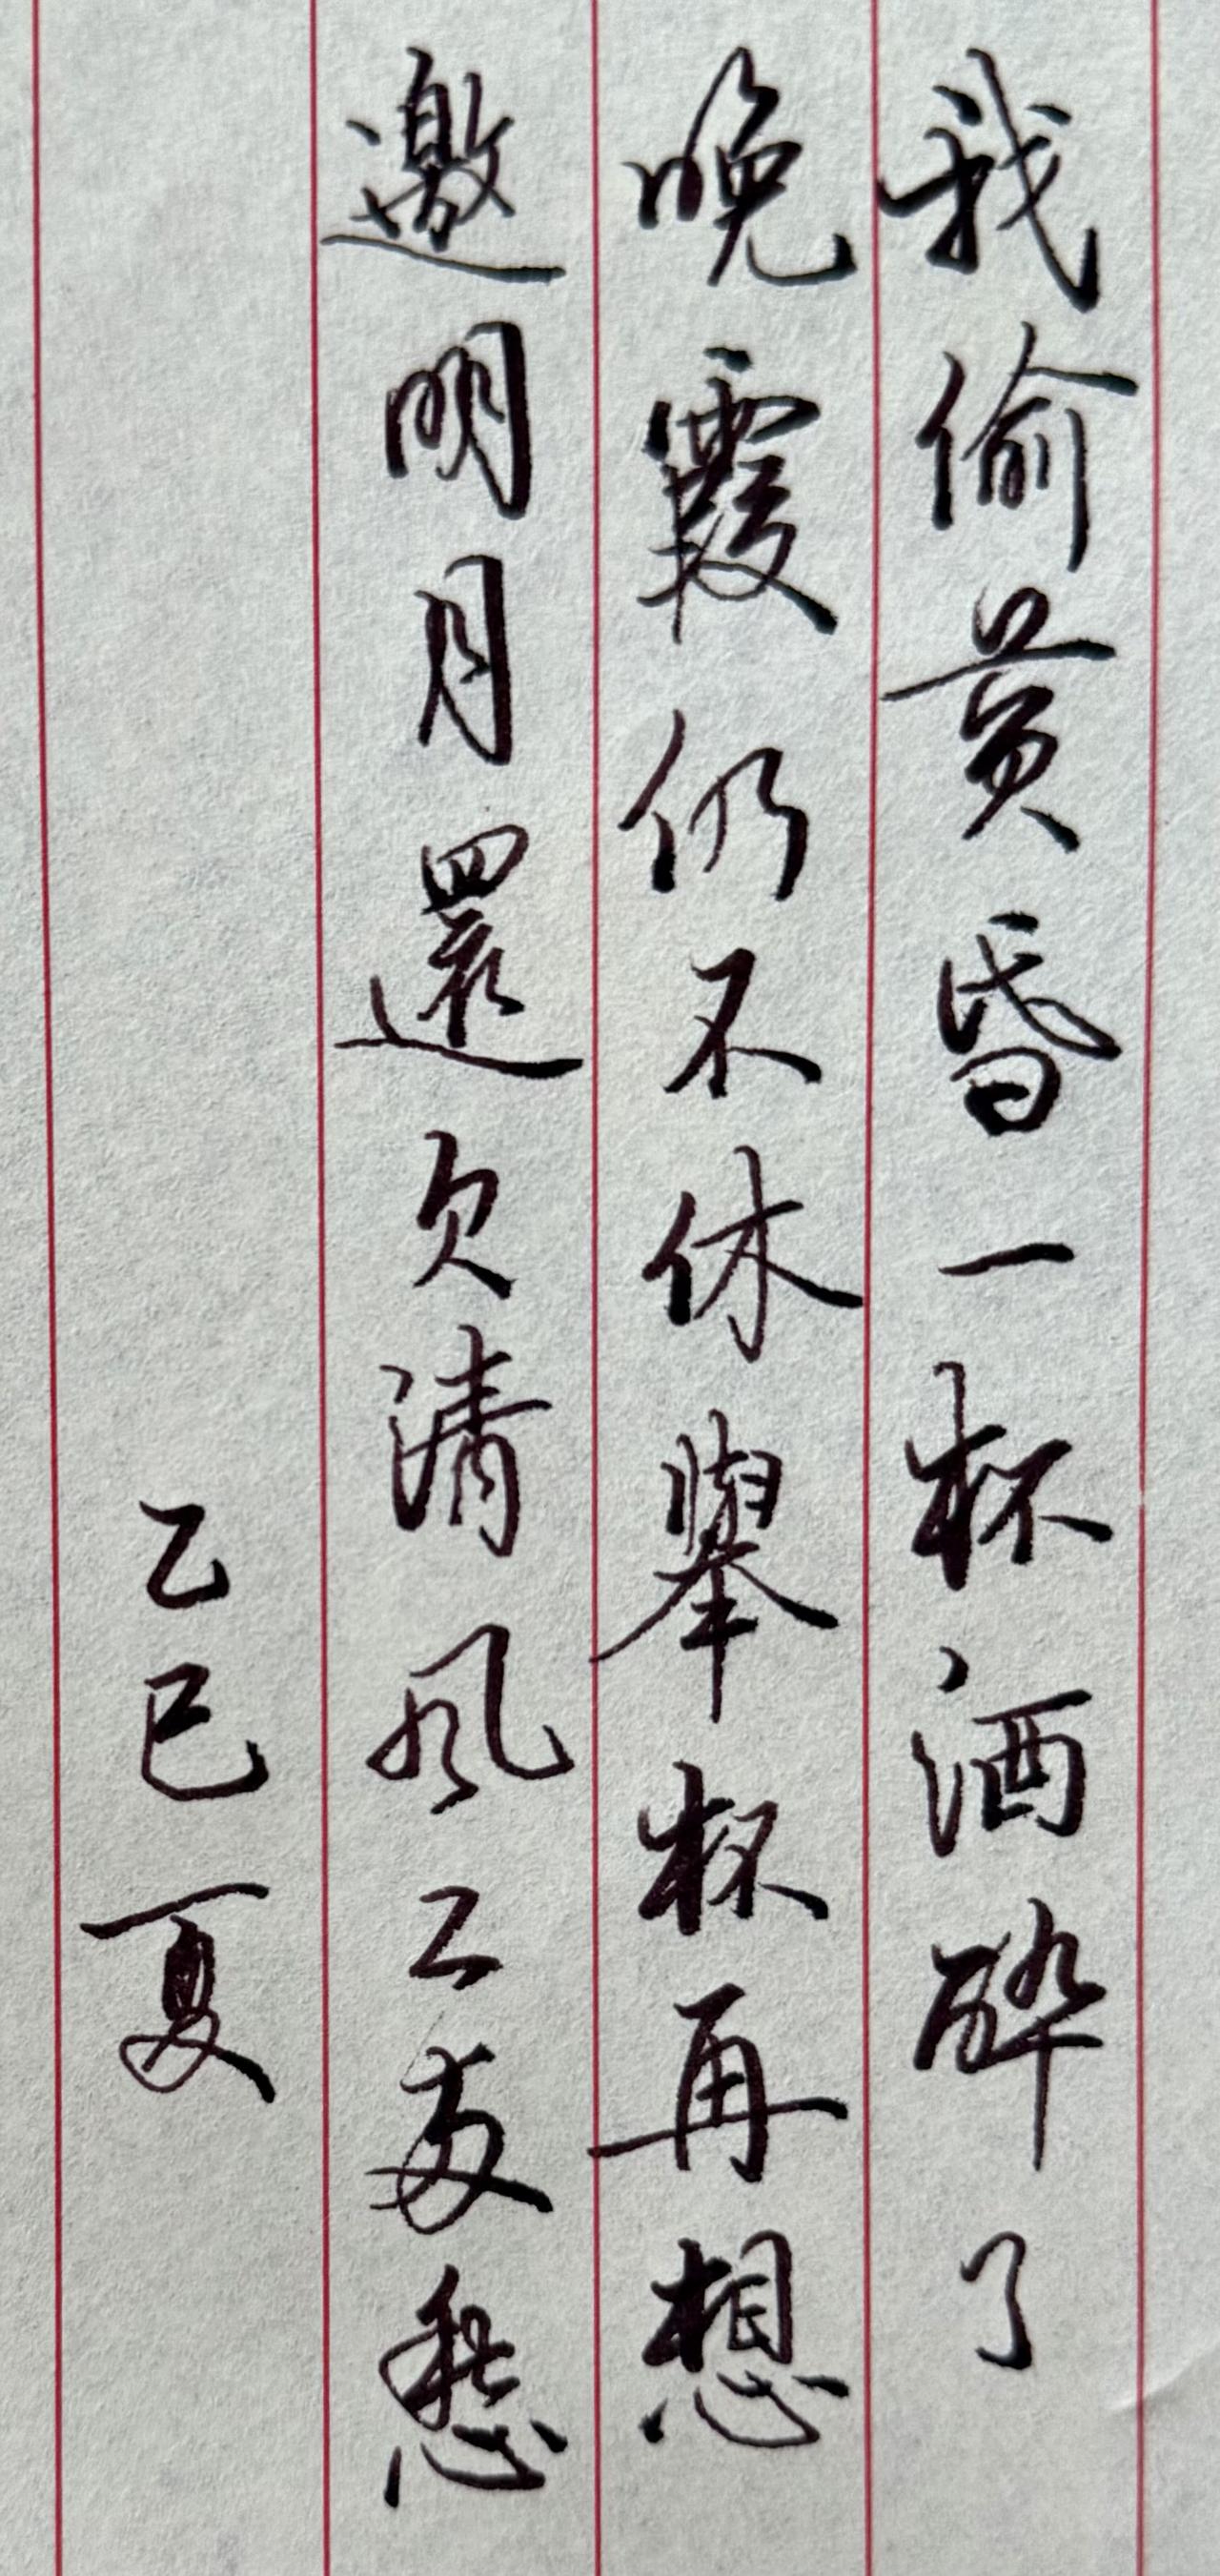 我偷黄昏一杯酒醉了
晚霞仍不休舉杯再想
邀明月還欠清風二两愁
乙巳夏